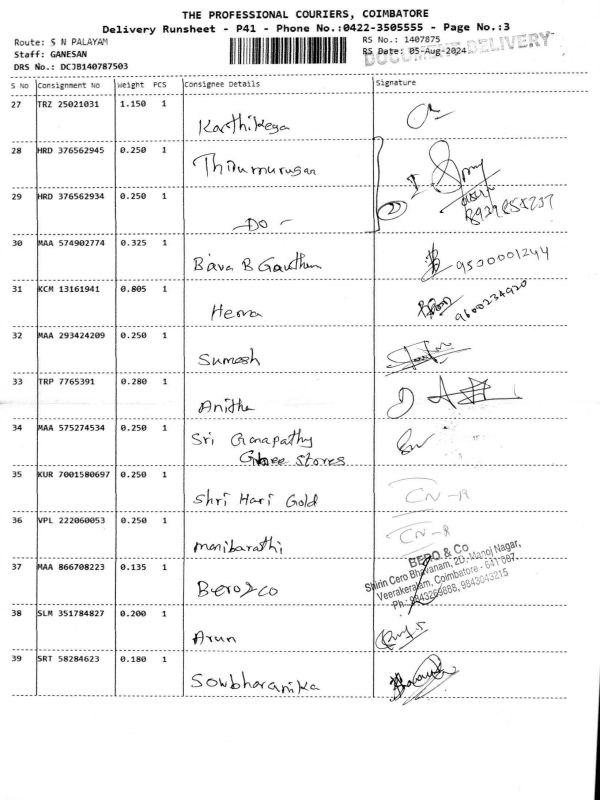 THE PROFESSIONAL COURIERS, COIMBATORE
Delivery Runsheet - P41 - Phone No.:0422-3505555 - Page No.:3
Route: S N PALAYAM
RS No.: 1407875
Staff: GANESAN
RS Date: 05-Aug-2024
DOCUMENT DELIVERY
DRS No.: DCJB140787503
S No Consignment No Weight PCS Consignee Details Signature
27 TRZ 25021031 1.150 1
Karthikeya
28 HRD 376562945 0.250 1
Thirumurugan
29 HRD 376562934 0.250 1
- Do -
30 MAA 574902774 0.325 1
Bava B Gautham
9500001244
31 KCM 13161941 0.805 1
Hema
9600234920
32 MAA 293424209 0.250 1
Sumesh
33 TRP 7765391 0.280 1
Anitha
34 MAA 575274534 0.250 1
Sri Ganapathy
Stores
35 KUR 7001580697 0.250 1
Shri Hari Gold
36 VPL 222060053 0.250 1
manibarathi
37 MAA 866708223 0.135 1
Bero & Co
BERO & Co
Shirin Cero Bhavanam, 2D, Manoj Nagar,
Veerakeralam, Coimbatore - 641 007.
Ph : 9843269888, 9843043215
38 SLM 351784827 0.200 1
Arun
39 SRT 58284623 0.180 1
Sowbharanika